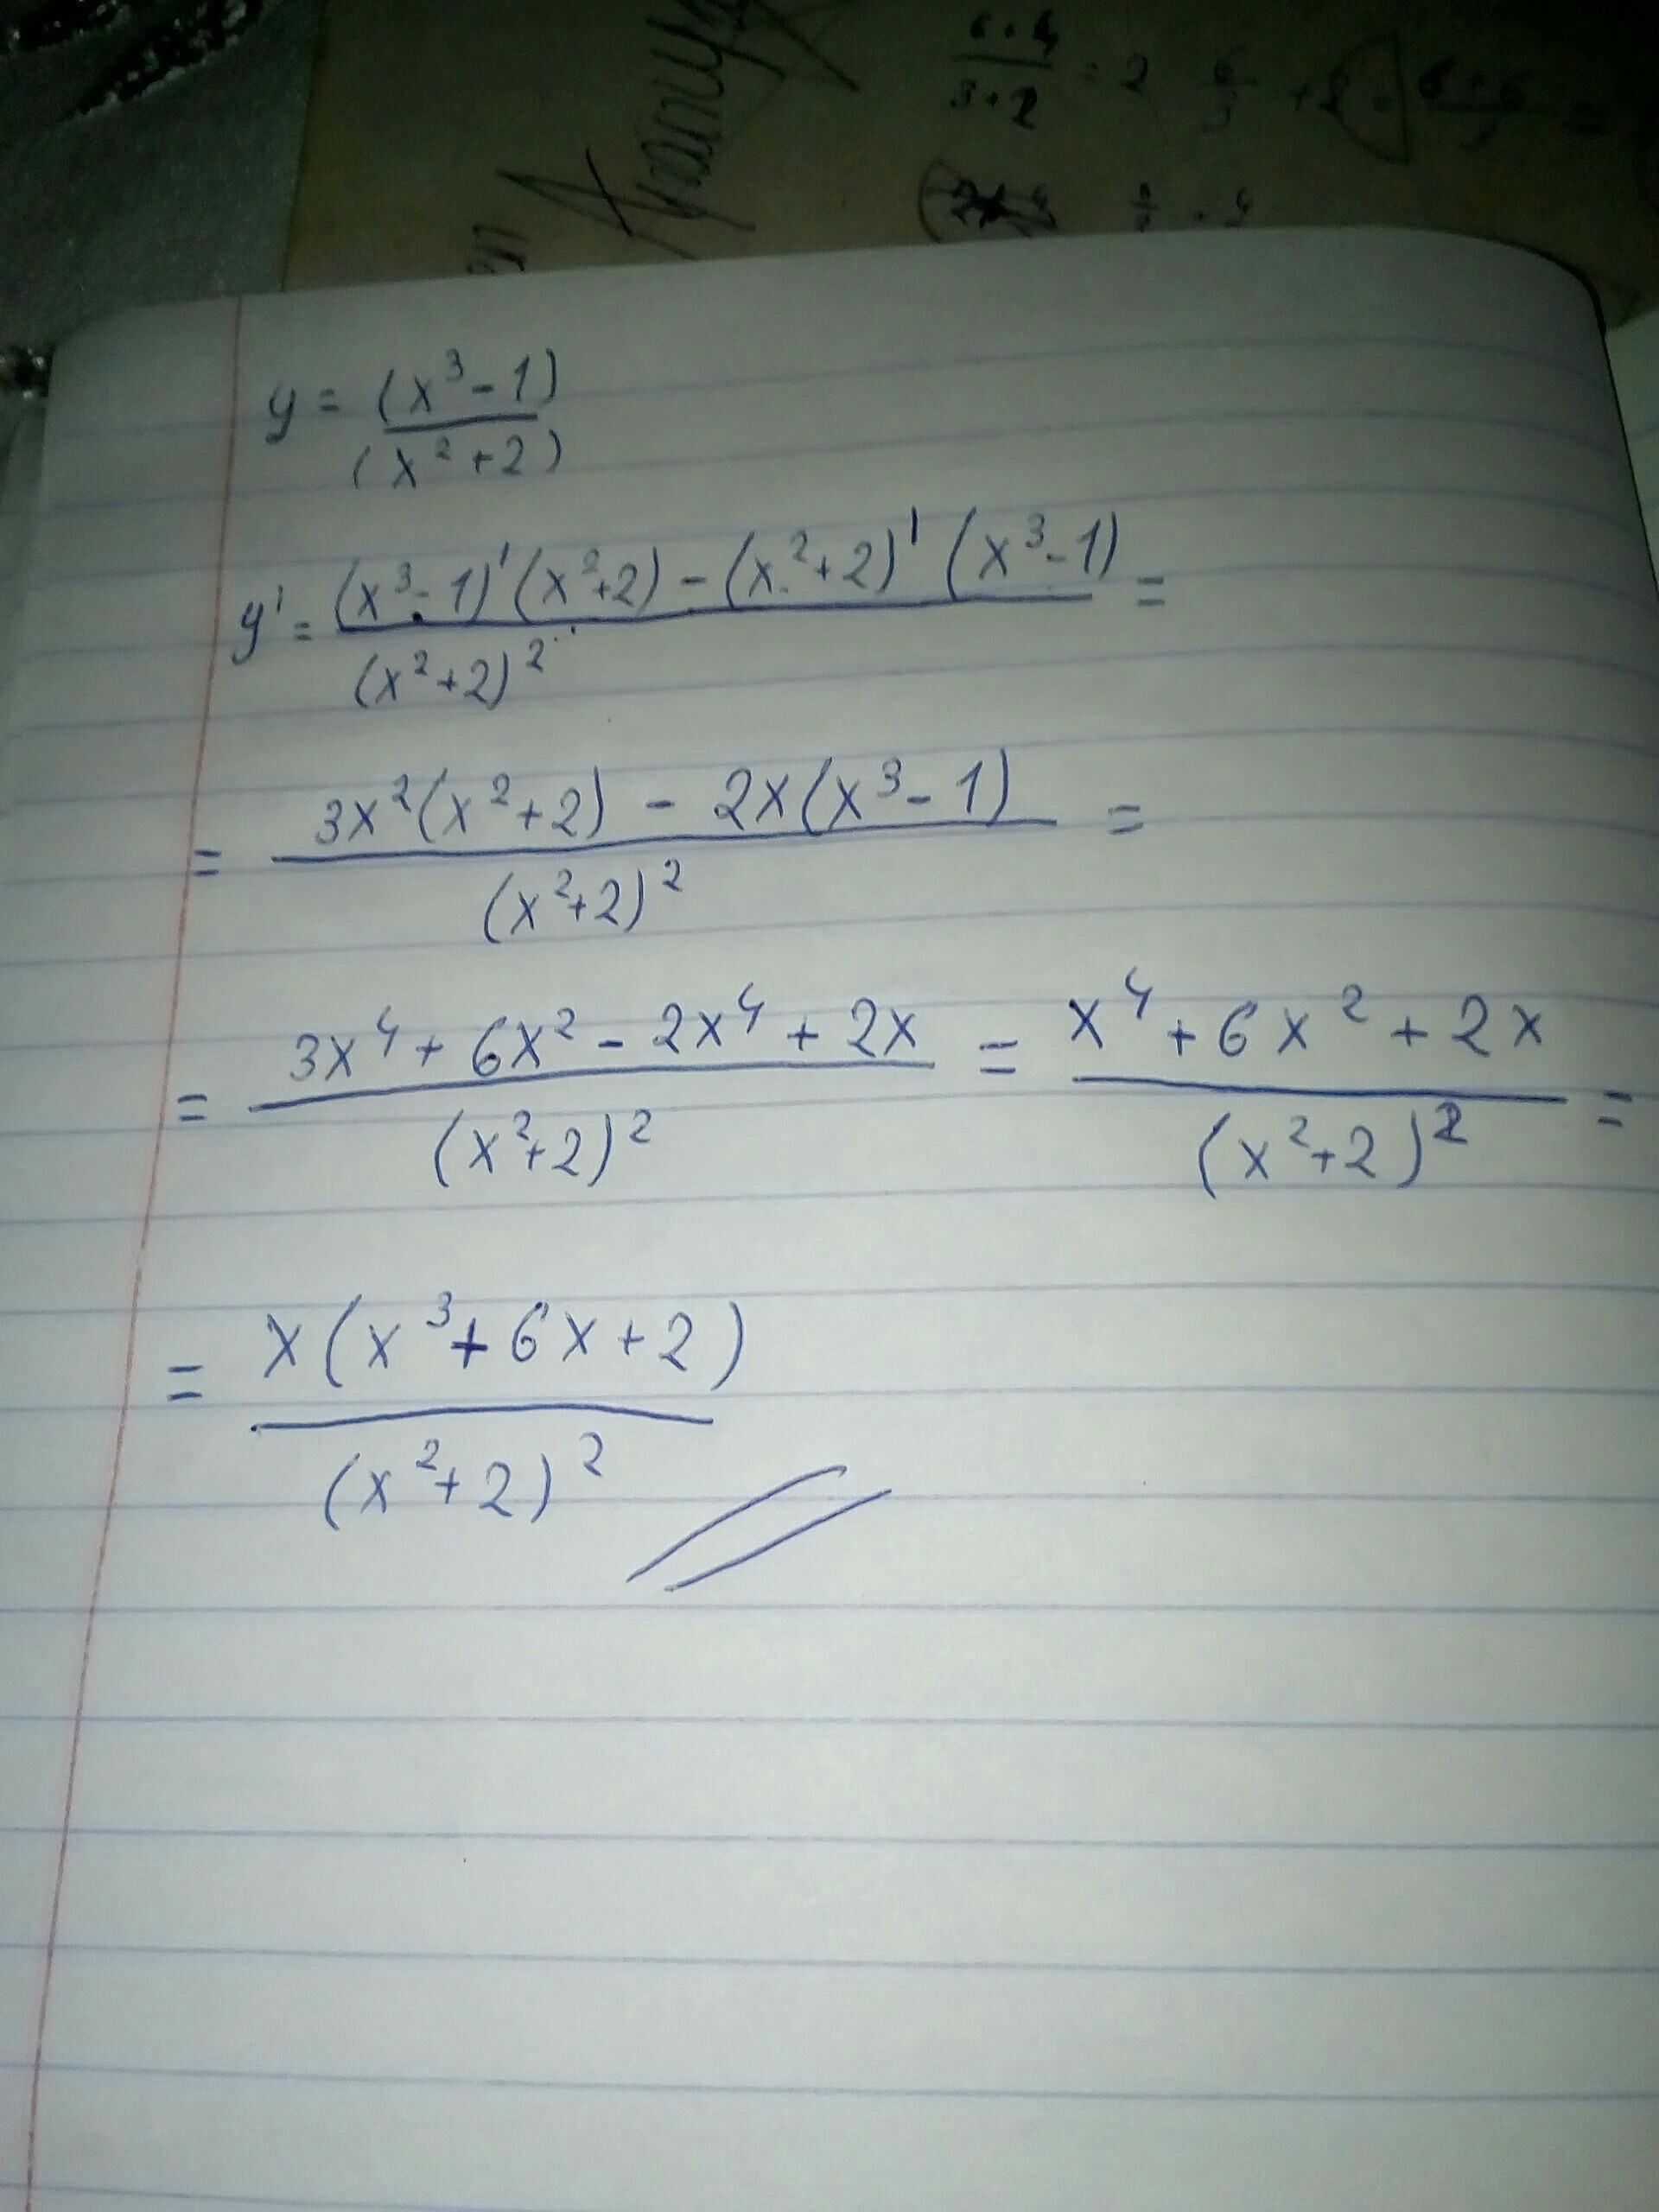 6+4/3+2 = 2
y = (x³-1)/(x²+2)
y' = (x³-1)'(x²+2) - (x²+2)'(x³-1)/(x²+2)² =
= 3x²(x²+2) - 2x(x³-1)/(x²+2)² =
= 3x⁴+6x²-2x⁴+2x/(x²+2)² = x⁴+6x²+2x/(x²+2)² =
= x(x³+6x+2)/(x²+2)²